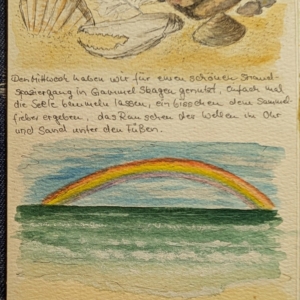 Den Mittwoch haben wir für einen schönen Strand-
spaziergang in Gammel Skagen genutzt, einfach mal
die Seele baumeln lassen, ein bisschen dem Sammel-
fieber ergeben, das Rauschen der Wellen im Ohr
und Sand unter den Füßen.